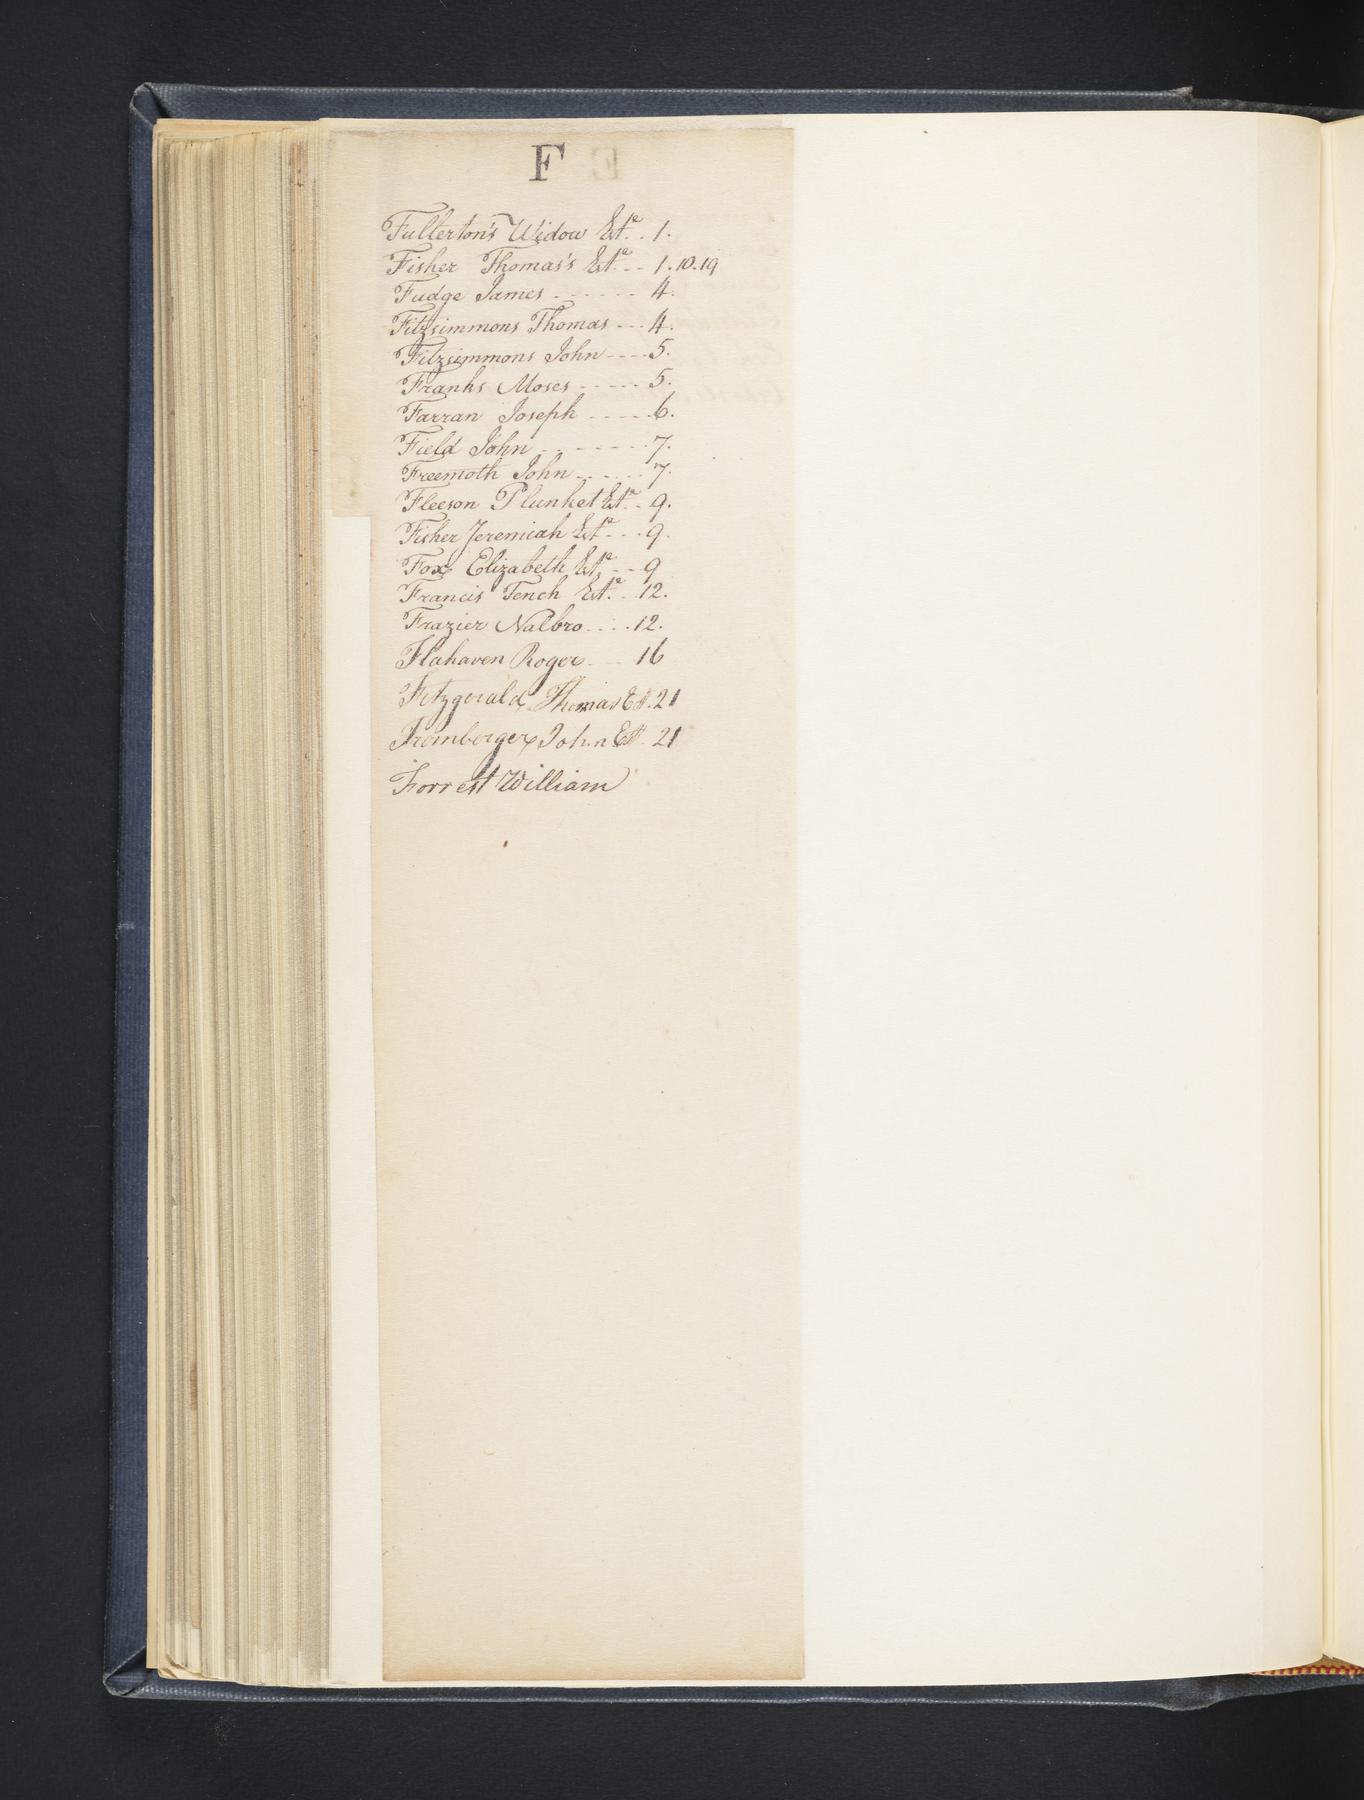 F
Fullerton's Widow Est.e . . 1.
Fisher Thomas's Est.e - - 1.10.19
Fudge James - - - - - - 4.
Fitzsimmons Thomas - - - 4.
Fitzsimmons John - - - - 5.
Franks Moses - - - - - 5.
Farran Joseph - - - - - 6.
Field John - - - - - - - 7.
Freemoth John - - - - - 7.
Fleeson Plunket Est.e - 9.
Fisher Jeremiah Est.e - - - 9.
Fox Elizabeth Est.e - - 9
Francis Tench Est.e - . 12.
Frazier Nalbro - . . . 12.
Flahaven Roger - - 16
Fitzgerald Thomas Est. 21
Fromberger John Est. 21
Forrest William